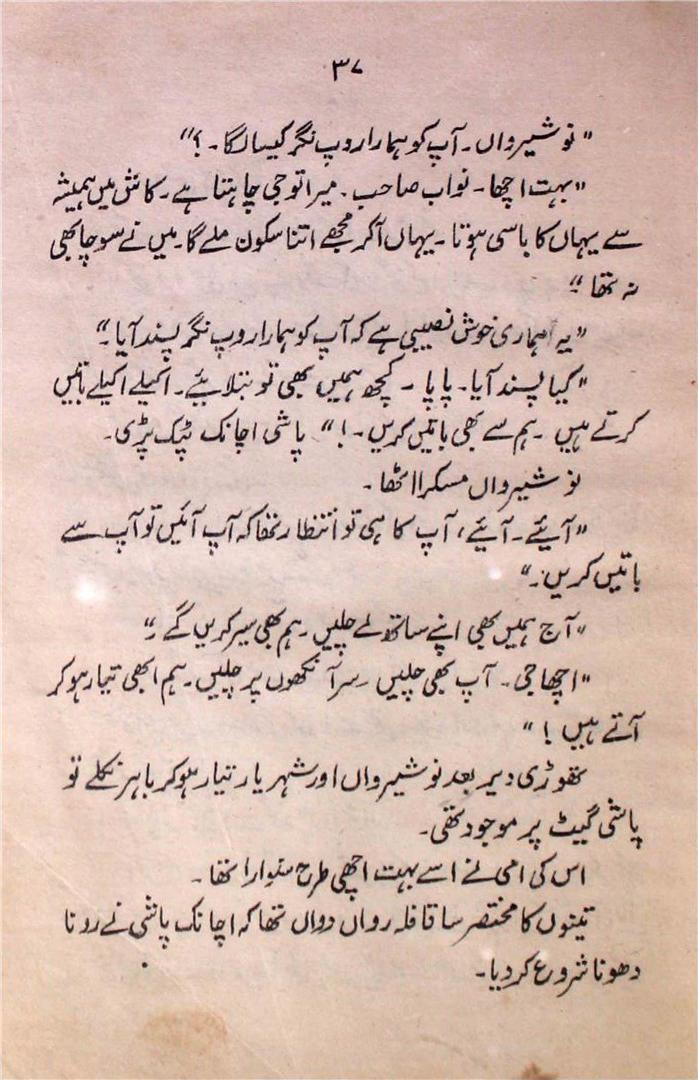 ۳۷
"نوشیرواں۔ آپ کو ہمارا روپ نگر کیسا لگا۔؟"
"بہت اچھا۔ نواب صاحب۔ میرا تو جی چاہتا ہے۔ کاش میں ہمیشہ
سے یہاں کا باسی ہوتا۔ یہاں آکر مجھے اتنا سکون ملے گا۔ میں نے سوچا بھی
نہ تھا"
"یہ ہماری خوش نصیبی ہے کہ آپ کو ہمارا روپ نگر پسند آیا۔"
"کیا پسند آیا۔ پاپا۔ کچھ ہمیں بھی تو بتلایئے۔ اکیلے اکیلے باتیں
کرتے ہیں۔ ہم سے بھی باتیں کریں۔!" پاشی اچانک ٹپک پڑی۔
نوشیرواں مسکرا اٹھا۔
"آیئے۔ آیئے، آپ کا ہی تو انتظار تھا کہ آپ آئیں تو آپ سے
باتیں کریں۔"
"آج ہمیں بھی اپنے ساتھ لے چلیں۔ ہم بھی سیر کریں گے۔"
"اچھا جی۔ آپ بھی چلیں۔ سر آنکھوں پر چلیں۔ ہم ابھی تیار ہو کر
آتے ہیں!"
تھوڑی دیر بعد نوشیرواں اور شہریار تیار ہو کر باہر نکلے تو
پاشی گیٹ پر موجود تھی۔
اس کی امی نے اسے بہت اچھی طرح سنوارا تھا۔
تینوں کا مختصر سا قافلہ رواں دواں تھا کہ اچانک پاشی نے رونا
دھونا شروع کر دیا۔